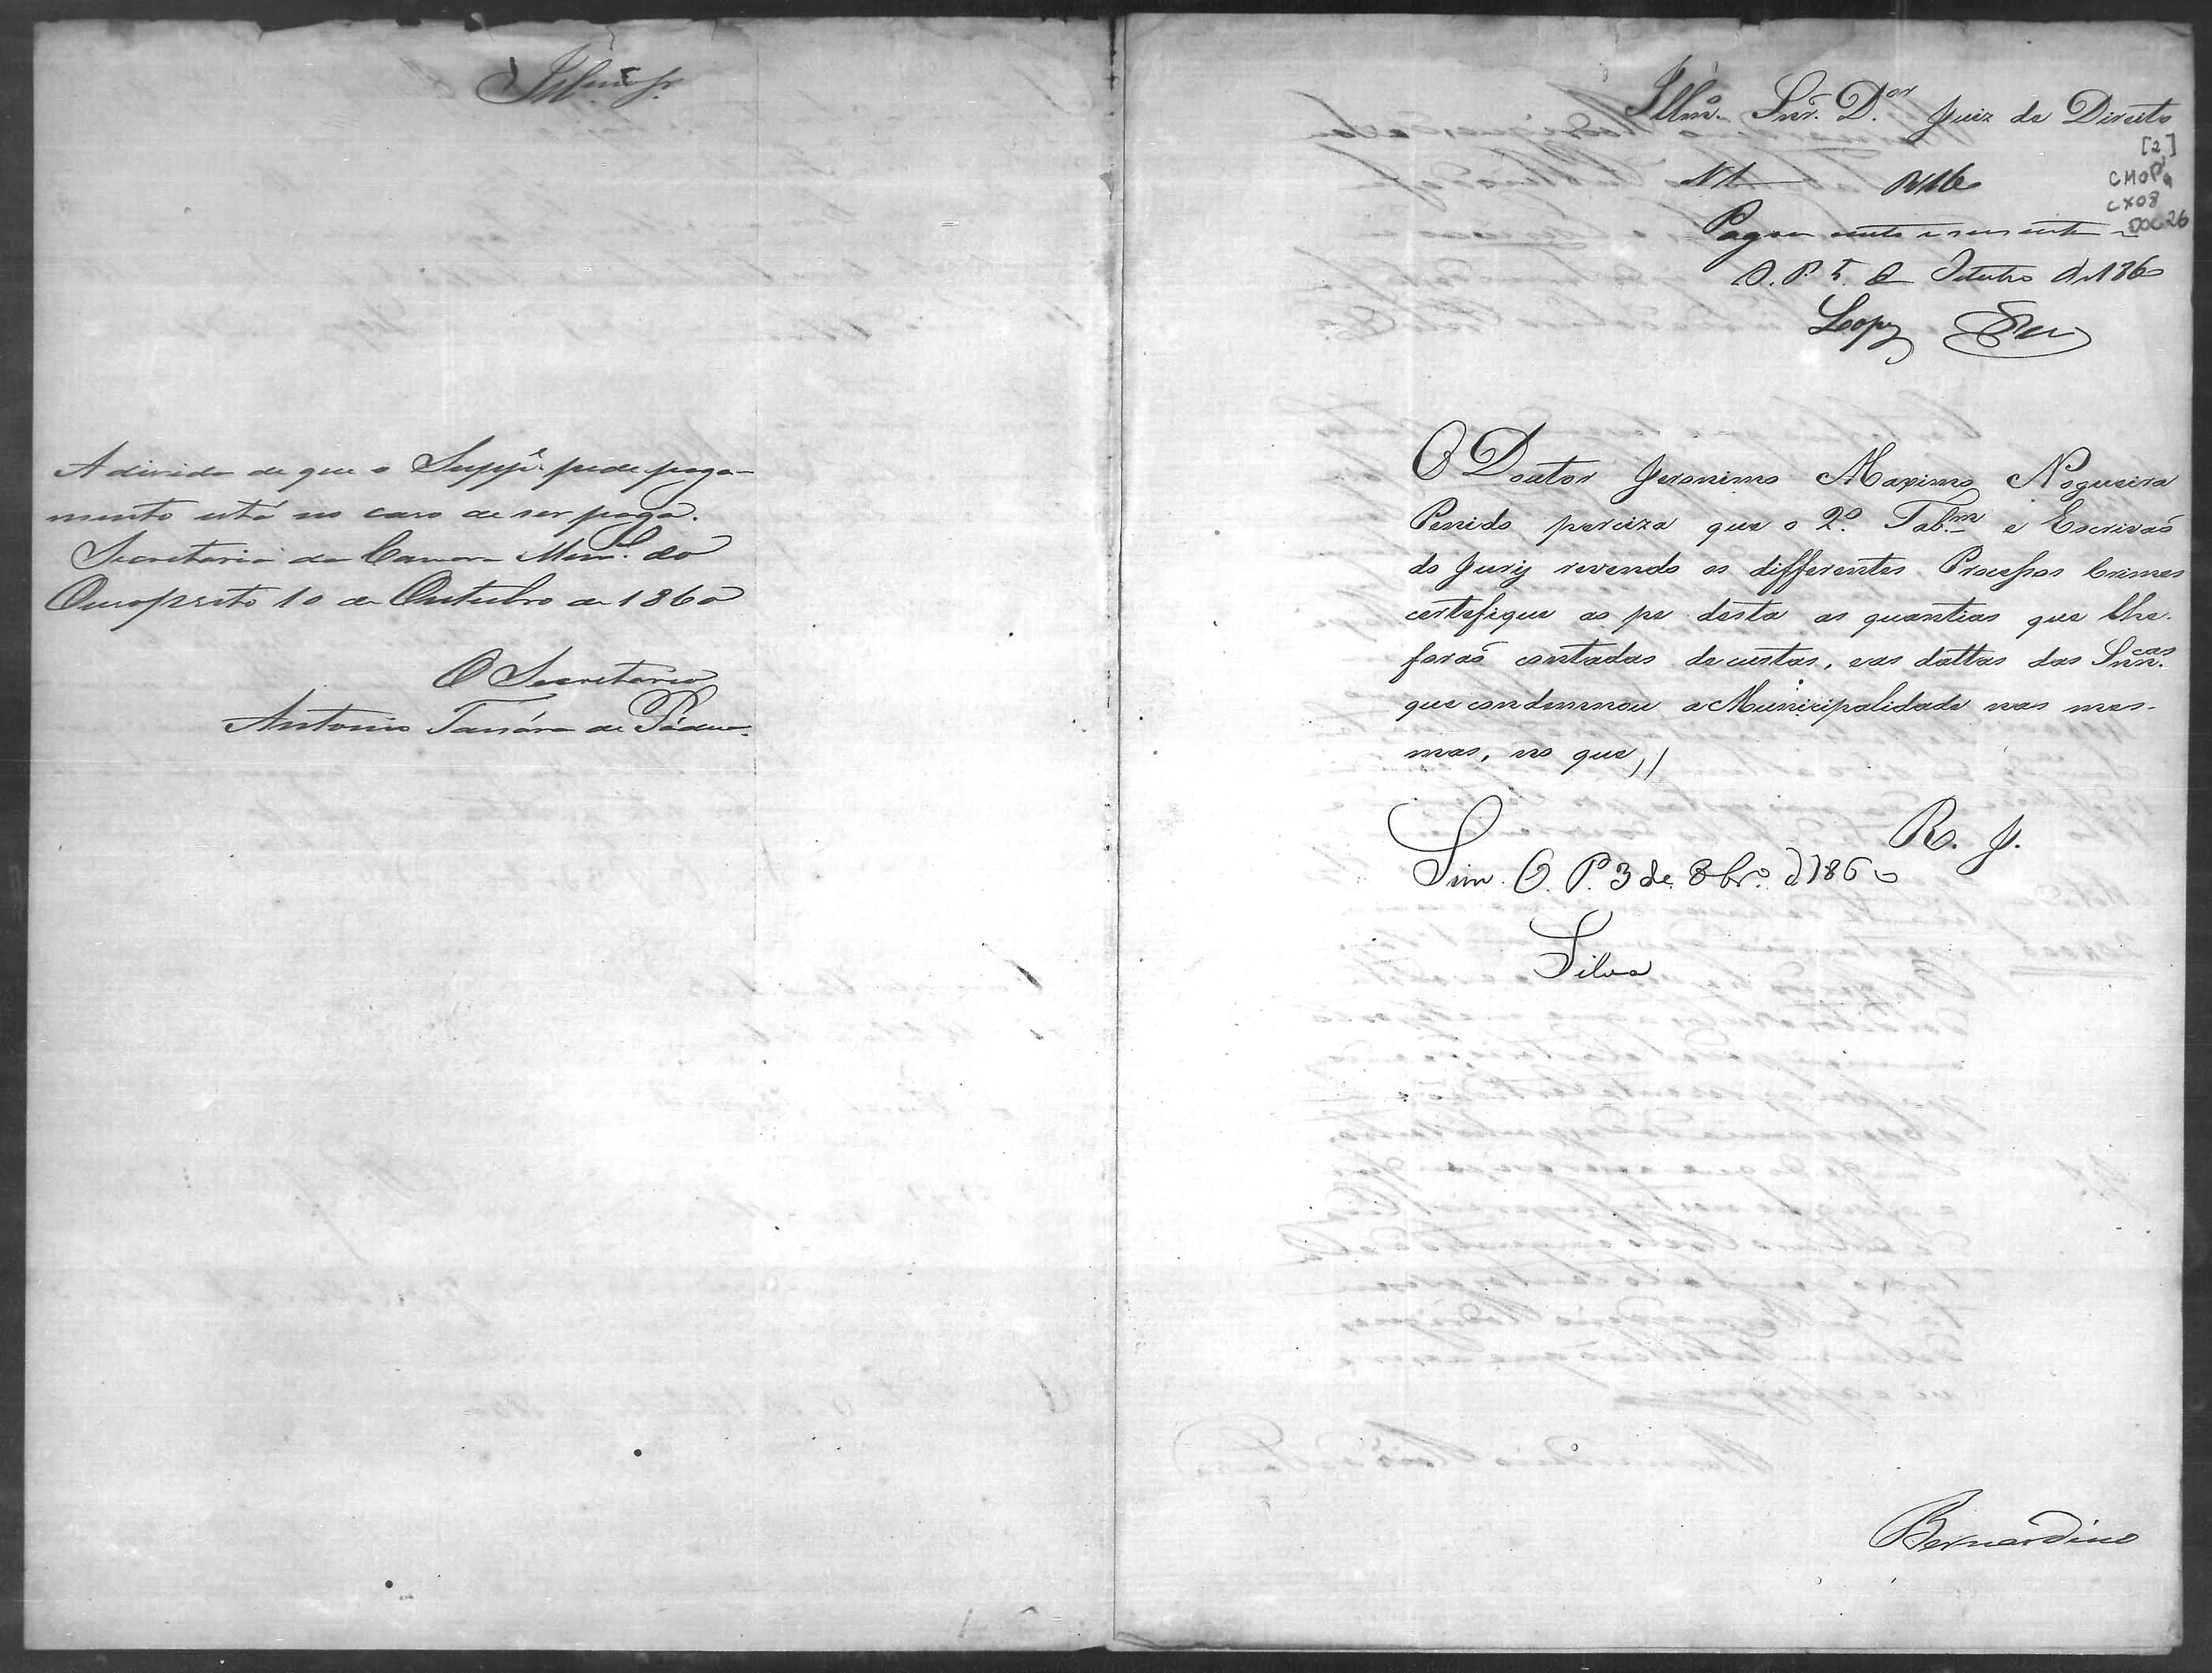 A divida de que o Supp.e pede paga-
mento está no caso de ser paga.
Secretaria da Camara Mun.l do
Ouropreto 10 de Outubro de 1860
O Secretario
Antonio Tassára de Pádua.
Illm.o Snr. D.or Juiz de Direito
[2]
CMOP
CX08
DOC 26
N 1
Pagou cento e sessenta
O. P. 5 de Outubro de 1860
Lopes
O Doutor Jeronimo Maximo Nogueira
Penido perciza que o 2.o Tab.m e Escrivaõ
do Jury revendo os differentes Processos Crimes
certefique ao pe desta as quantias que lhe
foraõ contadas de custas, e as dattas das Snn.cas
que condemnou a Municipalidade nas mes-
mas, no que //
R. J.
Sim. O. P. 3 de 8br.o d 1860
Silva
Bernardino